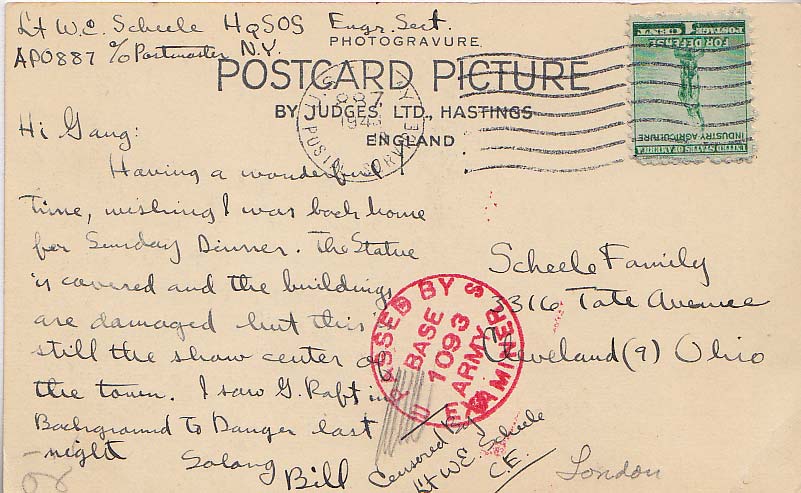 Lt W.E. Scheele HqSOS Engr. Sect.
APO887 c/o Postmaster N.Y.
PHOTOGRAVURE.
POSTCARD PICTURE
BY JUDGES, LTD., HASTINGS
ENGLAND
887
1943
POSTAL SERVICE
UNITED STATES OF AMERICA
INDUSTRY AGRICULTURE
FOR DEFENSE
1 CENT
POSTAGE
Hi Gang:
Having a wonderful
time, wishing I was back home
for Sunday Dinner. The Statue
is covered and the buildings
are damaged but this
still the show center of
the town. I saw G. Raft in
Background to Danger last
-night
Solong
Bill
Scheele Family
3316 Tate Avenue
Cleveland (9) Ohio
PASSED BY
BASE
1093
ARMY
EXAMINER
Censored By
Lt W E. Scheele
C.E.
London